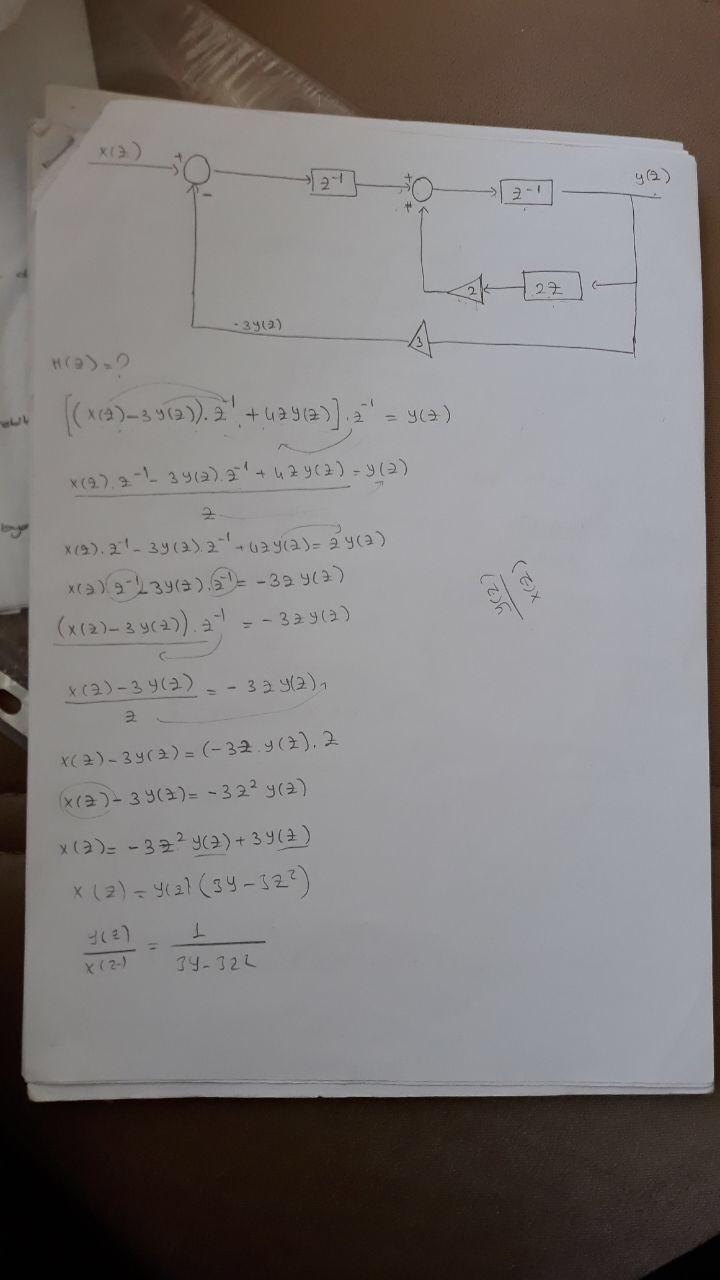 x(z)
+
-
z⁻¹
+
+
z⁻¹
y(z)
2
2z
-3y(z)
3
H(z)=?
[(x(z)-3y(z)).z⁻¹+4zy(z)].z⁻¹ = y(z)
x(z).z⁻¹-3y(z).z⁻¹+4zy(z)=y(z)
z
x(z).z⁻¹-3y(z).z⁻¹+4zy(z)=zy(z)
x(z)z⁻¹-3y(z).z⁻¹=-3zy(z)
(x(z)-3y(z)).z⁻¹ = -3zy(z)
x(z)-3y(z) = -3zy(z)
z
x(z)-3y(z)=(-3z.y(z).z
x(z)-3y(z)=-3z²y(z)
x(z)=-3z²y(z)+3y(z)
x(z)=y(z)(3y-3z²)
y(z) = 1
x(z) 3y-3z²
y(z)
x(z)